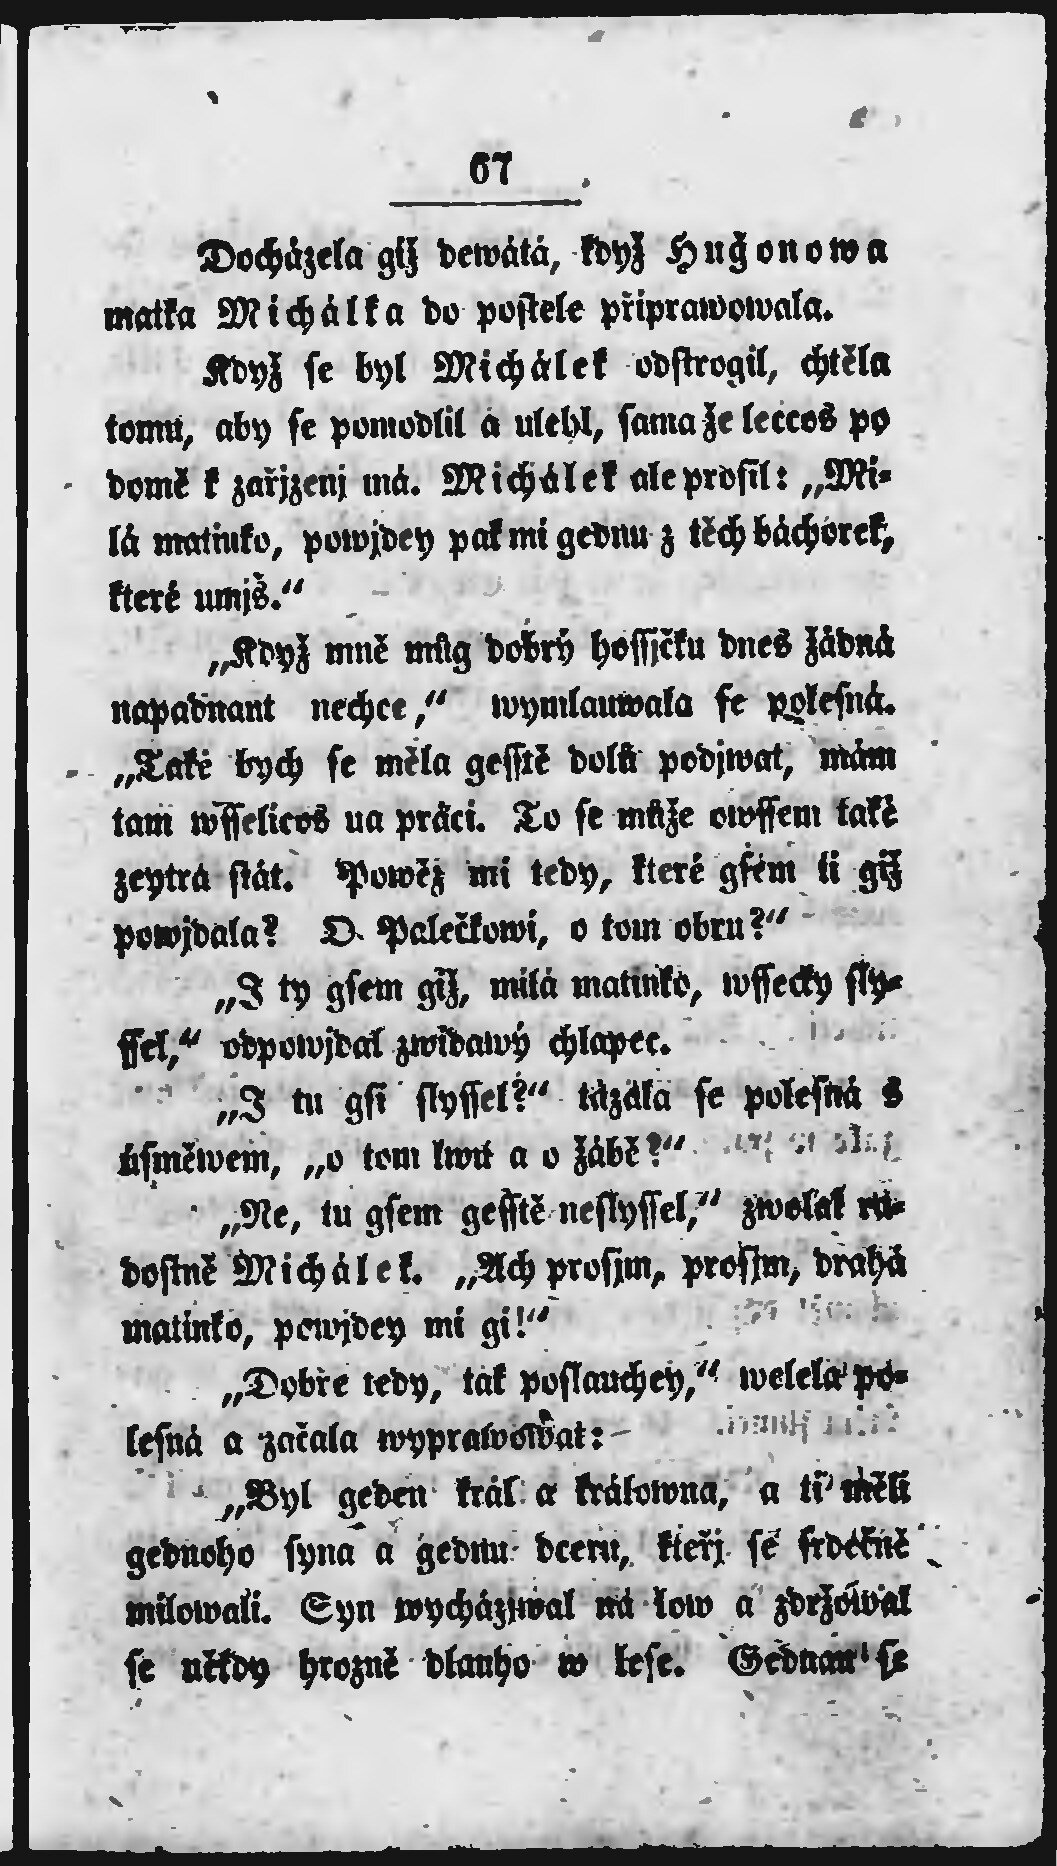 67
Docházela giž dewátá, když Hugonowa
matka Michálka do postele připrawowala.
Když se byl Michálek odstrogil, chtěla
tomu, aby se pomodlil a ulehl, sama že leccos po
domě k zařjzenj má. Michálek ale prosil: „Mi-
lá matinko, powjdey pak mi gednu z těch báchorek,
které umjš.“
„Když mně můg dobrý hossjčku dnes žádná
napadnaut nechce,“ wymlauwala se polesná.
„Také bych se měla gesstě dolů podjwat, mám
tam wsselicos na práci. To se může owssem také
zeytra stát. Powěz mi tedy, které gsem ti giž
powjdala? O Palečkowi, o tom obru?“
„I ty gsem giž, milá matinko, wssecky sly-
ssel,“ odpowjdal zwědawý chlapec.
„I tu gsi slyssel?“ tázala se polesná s
úsměwem, „o tom lwu a o žábě?“
„Ne, tu gsem gesstě neslyssel,“ zwolal ra-
dostně Michálek. „Ach prosjm, prosjm, drahá
matinko, powjdey mi gi!“
„Dobře tedy, tak poslauchey,“ welela po-
lesná a začala wyprawowat:
„Byl geden král a králowna, a ti měli
gednoho syna a gednu dceru, kteřj se srdečně
milowali. Syn wycházjwal na low a zdržowal
se někdy hrozně dlauho w lese. Gednau se